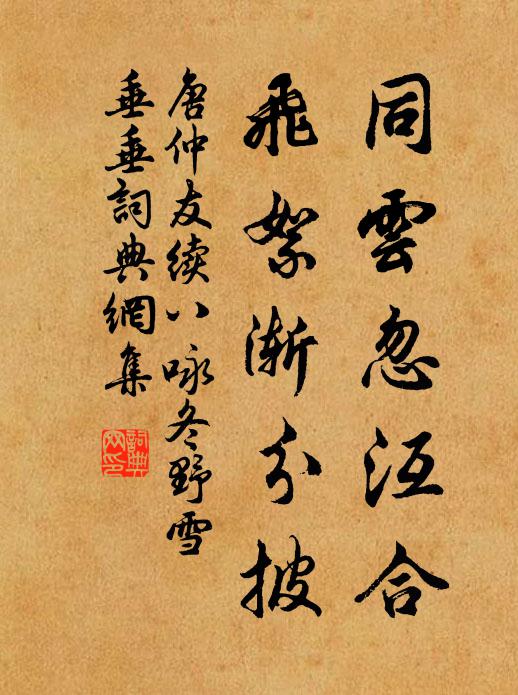 同雲忽沍合
飛絮漸分披
唐仲友續八咏冬野雪
垂垂詞典網集
詞典
网印